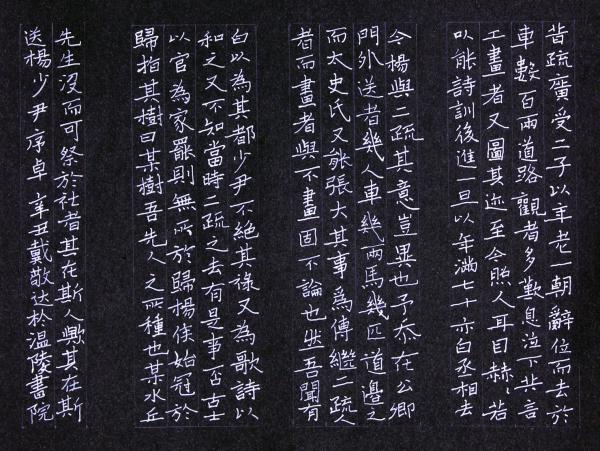 昔疏廣受二子以年老一朝辭位而去於
車數百兩道路觀者多歎息泣下共言
工畫者又圖其迹至今照人耳目赫〻若
以能詩訓後進一旦以年滿七十亦白丞相去
今楊與二疏其意豈異也予忝在公卿
門外送者幾人車幾兩馬幾匹道邊之
而太史氏又能張大其事爲傳繼二疏
者而畫者與不畫固不論也然吾聞有
白以為其都少尹不絕其祿又為歌詩以
和之又不知當時二疏之去有是事否古士
以官為家罷則無所於歸楊侯始冠於
歸指其樹曰某樹吾先人之所種也某水丘
先生沒而可祭於社者其在斯人歟其在斯
送楊少尹序卓 辛丑戴敬达於温陵書院